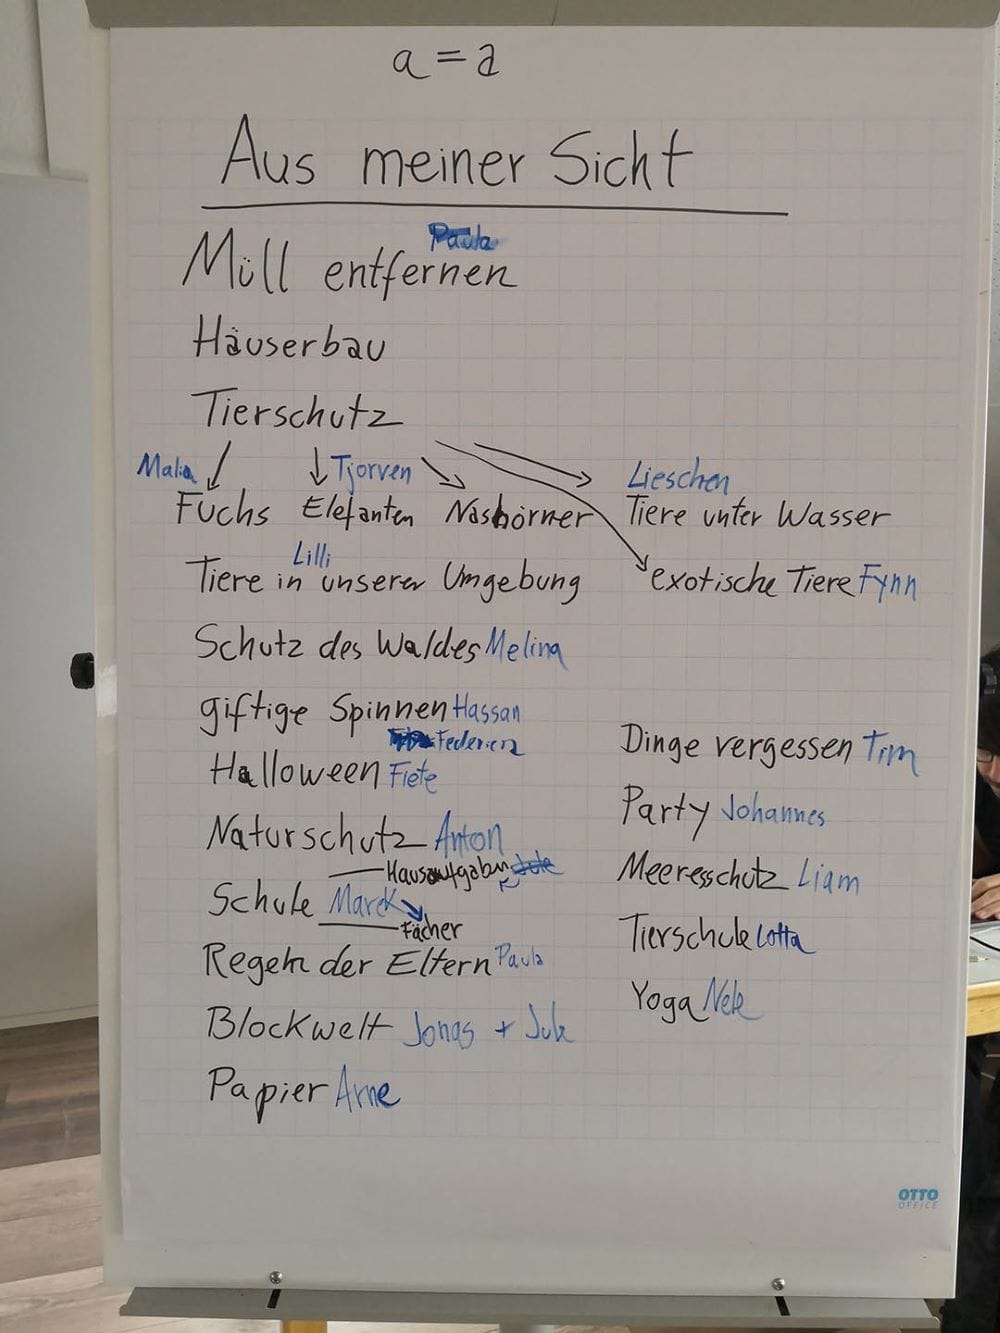 a = a
Aus meiner Sicht
Paula
Müll entfernen
Häuserbau
Tierschutz
Malia Tjorven Lieschen
Fuchs Elefanten Nashörner Tiere unter Wasser
Lilli
Tiere in unserer Umgebung exotische Tiere Fynn
Schutz des Waldes Melina
giftige Spinnen Hassan
Federica
Halloween Fiete
Naturschutz Anton
Hausaufgaben Jule
Schule Marek
Fächer
Regeln der Eltern Paula
Blockwelt Jonas + Jule
Papier Arne
Dinge vergessen Tim
Party Johannes
Meeresschutz Liam
Tierschule Lotta
Yoga Nele
OTTO
OFFICE